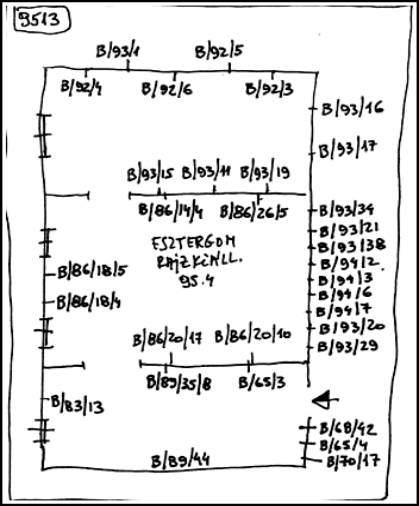 9513
B/93/1
B/92/5
B/92/4
B/92/6
B/92/3
B/93/16
B/93/17
B/93/15
B/93/11
B/93/19
B/86/14/4
B/86/26/5
ESZTERGOM
RAJZKIÁLL.
95.4
B/93/34
B/93/21
B/93/38
B/94/2
B/94/3
B/94/6
B/94/7
B/93/20
B/93/29
B/86/18/5
B/86/18/4
B/86/20/17
B/86/20/10
B/89/35/8
B/65/3
B/83/13
B/68/42
B/65/4
B/70/17
B/89/44